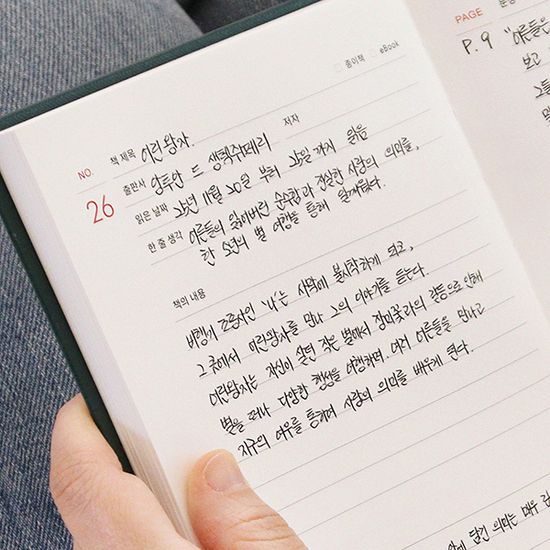 종이책 eBook
NO. 26
책 제목 어린왕자. 저자
출판사 앙투안 드 생텍쥐페리
읽은 날짜 25년 11월 20일 부터 25일 까지 읽음
한 줄 생각 어른들의 잃어버린 순수함과 진실한 사랑의 의미를,
한 소년의 별 여행을 통해 일깨웠다.
책의 내용
비행기 조종사인 '나'는 사막에 불시착하게 되고,
그곳에서 어린왕자를 만나 그의 이야기를 듣는다.
어린왕자는 자신이 살던 작은 별에서 장미꽃과의 갈등으로 인해
별을 떠나 다양한 행성을 여행하며, 여러 어른들을 만나고
지구의 여우를 통하여 사랑의 의미를 배우게 된다.
PAGE
P. 9 "어른들은
보고
그들
담긴 의미는 매우